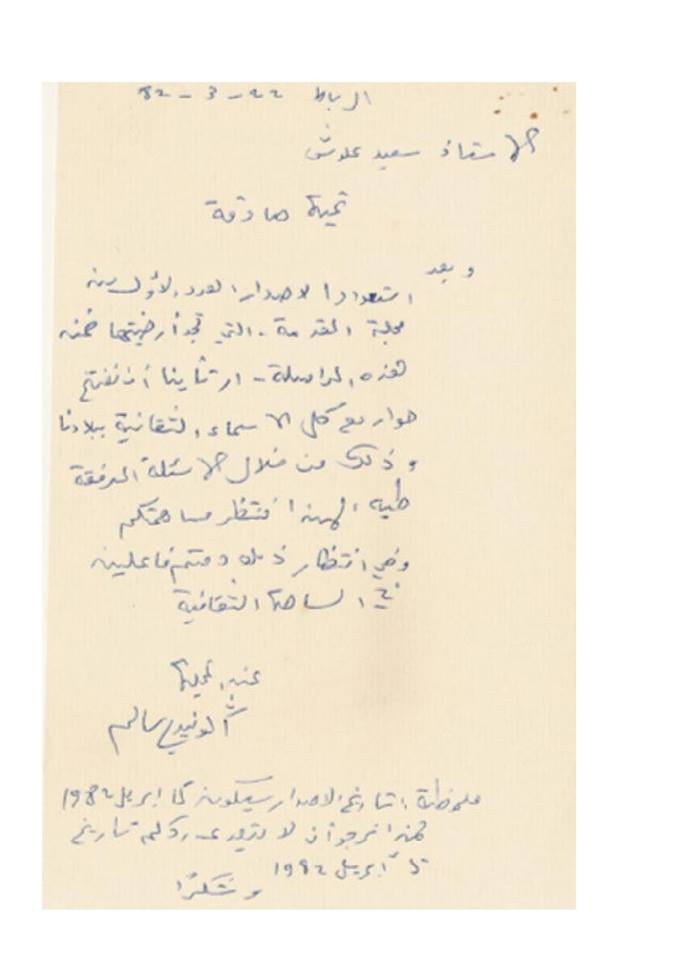 الرباط 22 - 3 - 82
الأستاذ سعيد علوش
تحية صادقة
وبعد
استعدادا لاصدار العدد الأول من
مجلة المقدمة - التي تجد أرضيتها ضمنه
هذه المراسلة - ارتأينا أن نفتح
حوار مع كل الأسماء الثقافية ببلادنا
وذلك من خلال الأسئلة المرفقة
طيه لهذا ننتظر مساهمتكم
وفي انتظار ذلك دمتم فاعلين
في الساحة الثقافية
عنه
سالم
ملحوظة: تاريخ الاصدار سيكون أبريل 1982
لهذا نرجو أن لا ردكم تاريخ
أبريل 1982
وشكرا